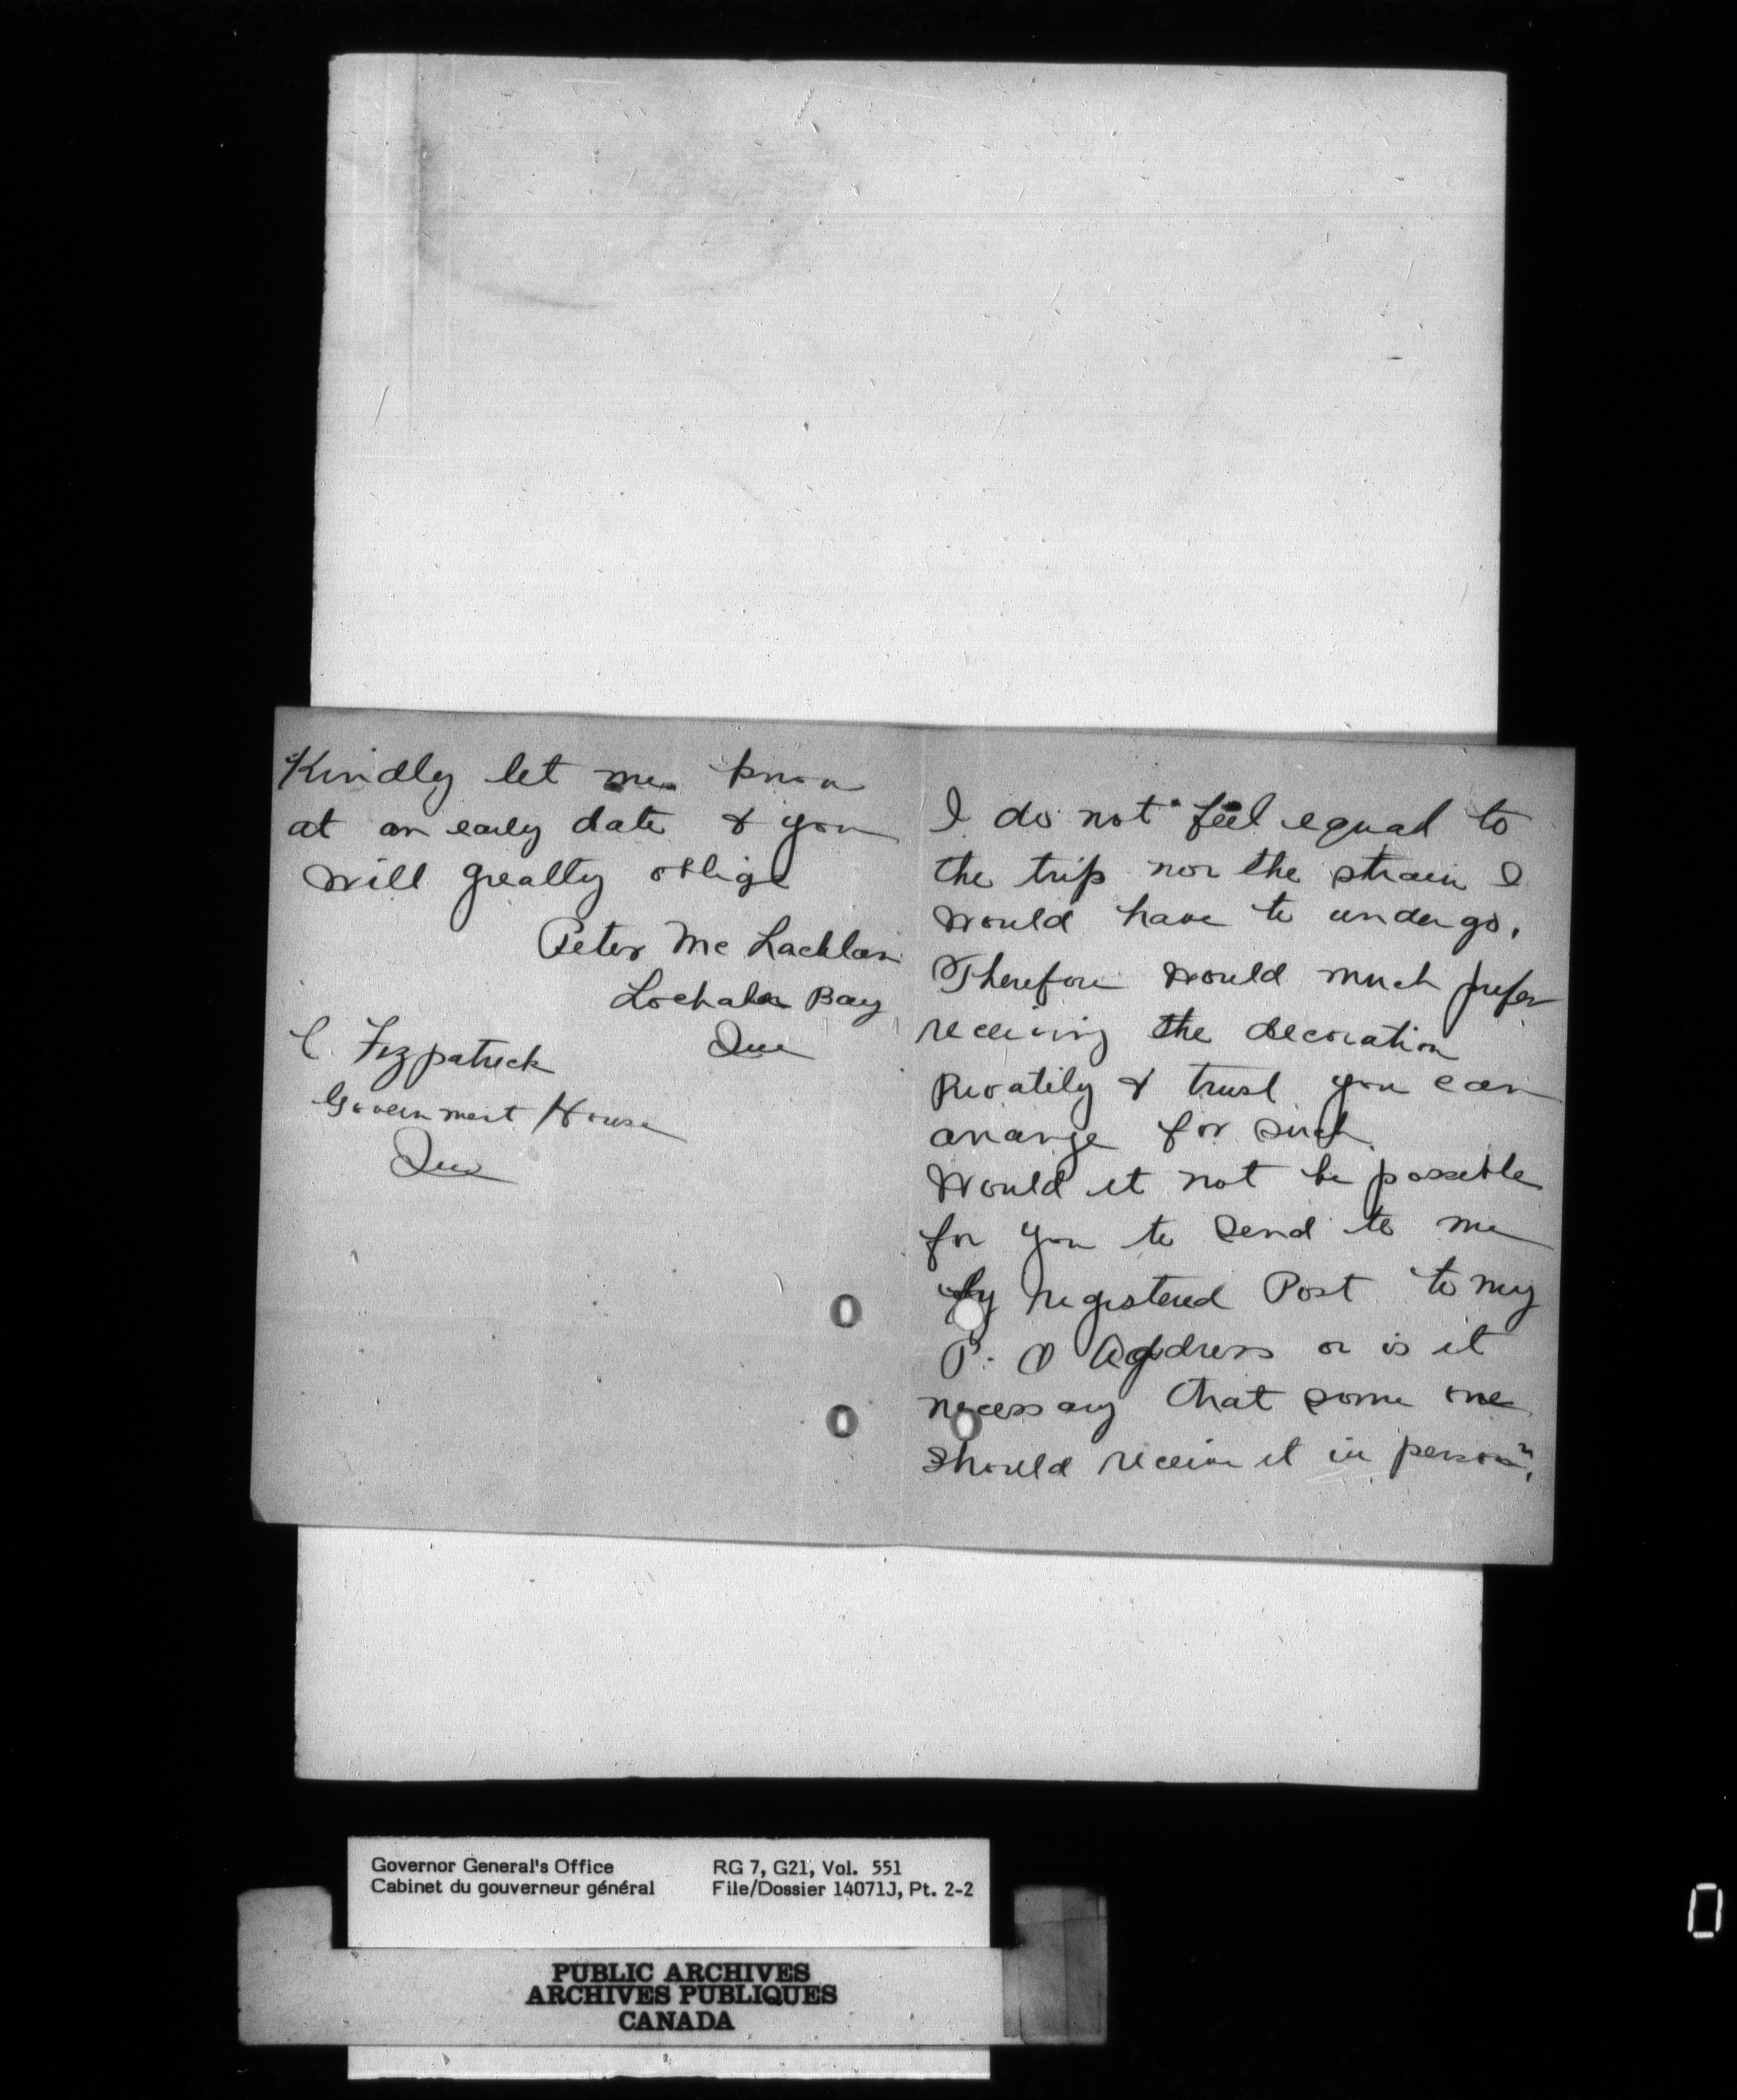 Kindly let me know
at an early date & you
will greatly oblige
Peter Mc Lachlan
Lochaber Bay
Que
C. Fizpatrick
Government House
Que
I do not feel equal to
the trip nor the strain I
would have to undergo.
Therefore would much prefer
receiving the decoration
privatily & trust you can
arrange for such.
Would it not be possible
for you to send to me
by registered Post to my
P. O Address or is it
necessary that some one
should receive it in person?
Governor General's Office
Cabinet du gouverneur général
RG 7, G21, Vol. 551
File/Dossier 14071J, Pt. 2-2
PUBLIC ARCHIVES
ARCHIVES PUBLIQUES
CANADA
0